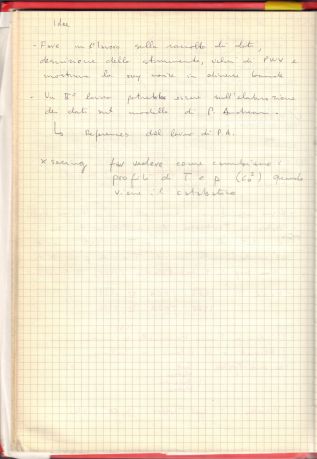 Idee
- Fare un lavoro sulla raccolta di dati,
descrizione dello strumento, valori di PWV e
mostrare lo sky noise in diverse bande
- Un II° lavoro potrebbe essere sull'elaborazione
dei dati sul modello di P. Andreani.
↳ References del lavoro di P.A.
x seeing far vedere come cambiano i
profili di T e p (Cn²) quando
viene il catabatico